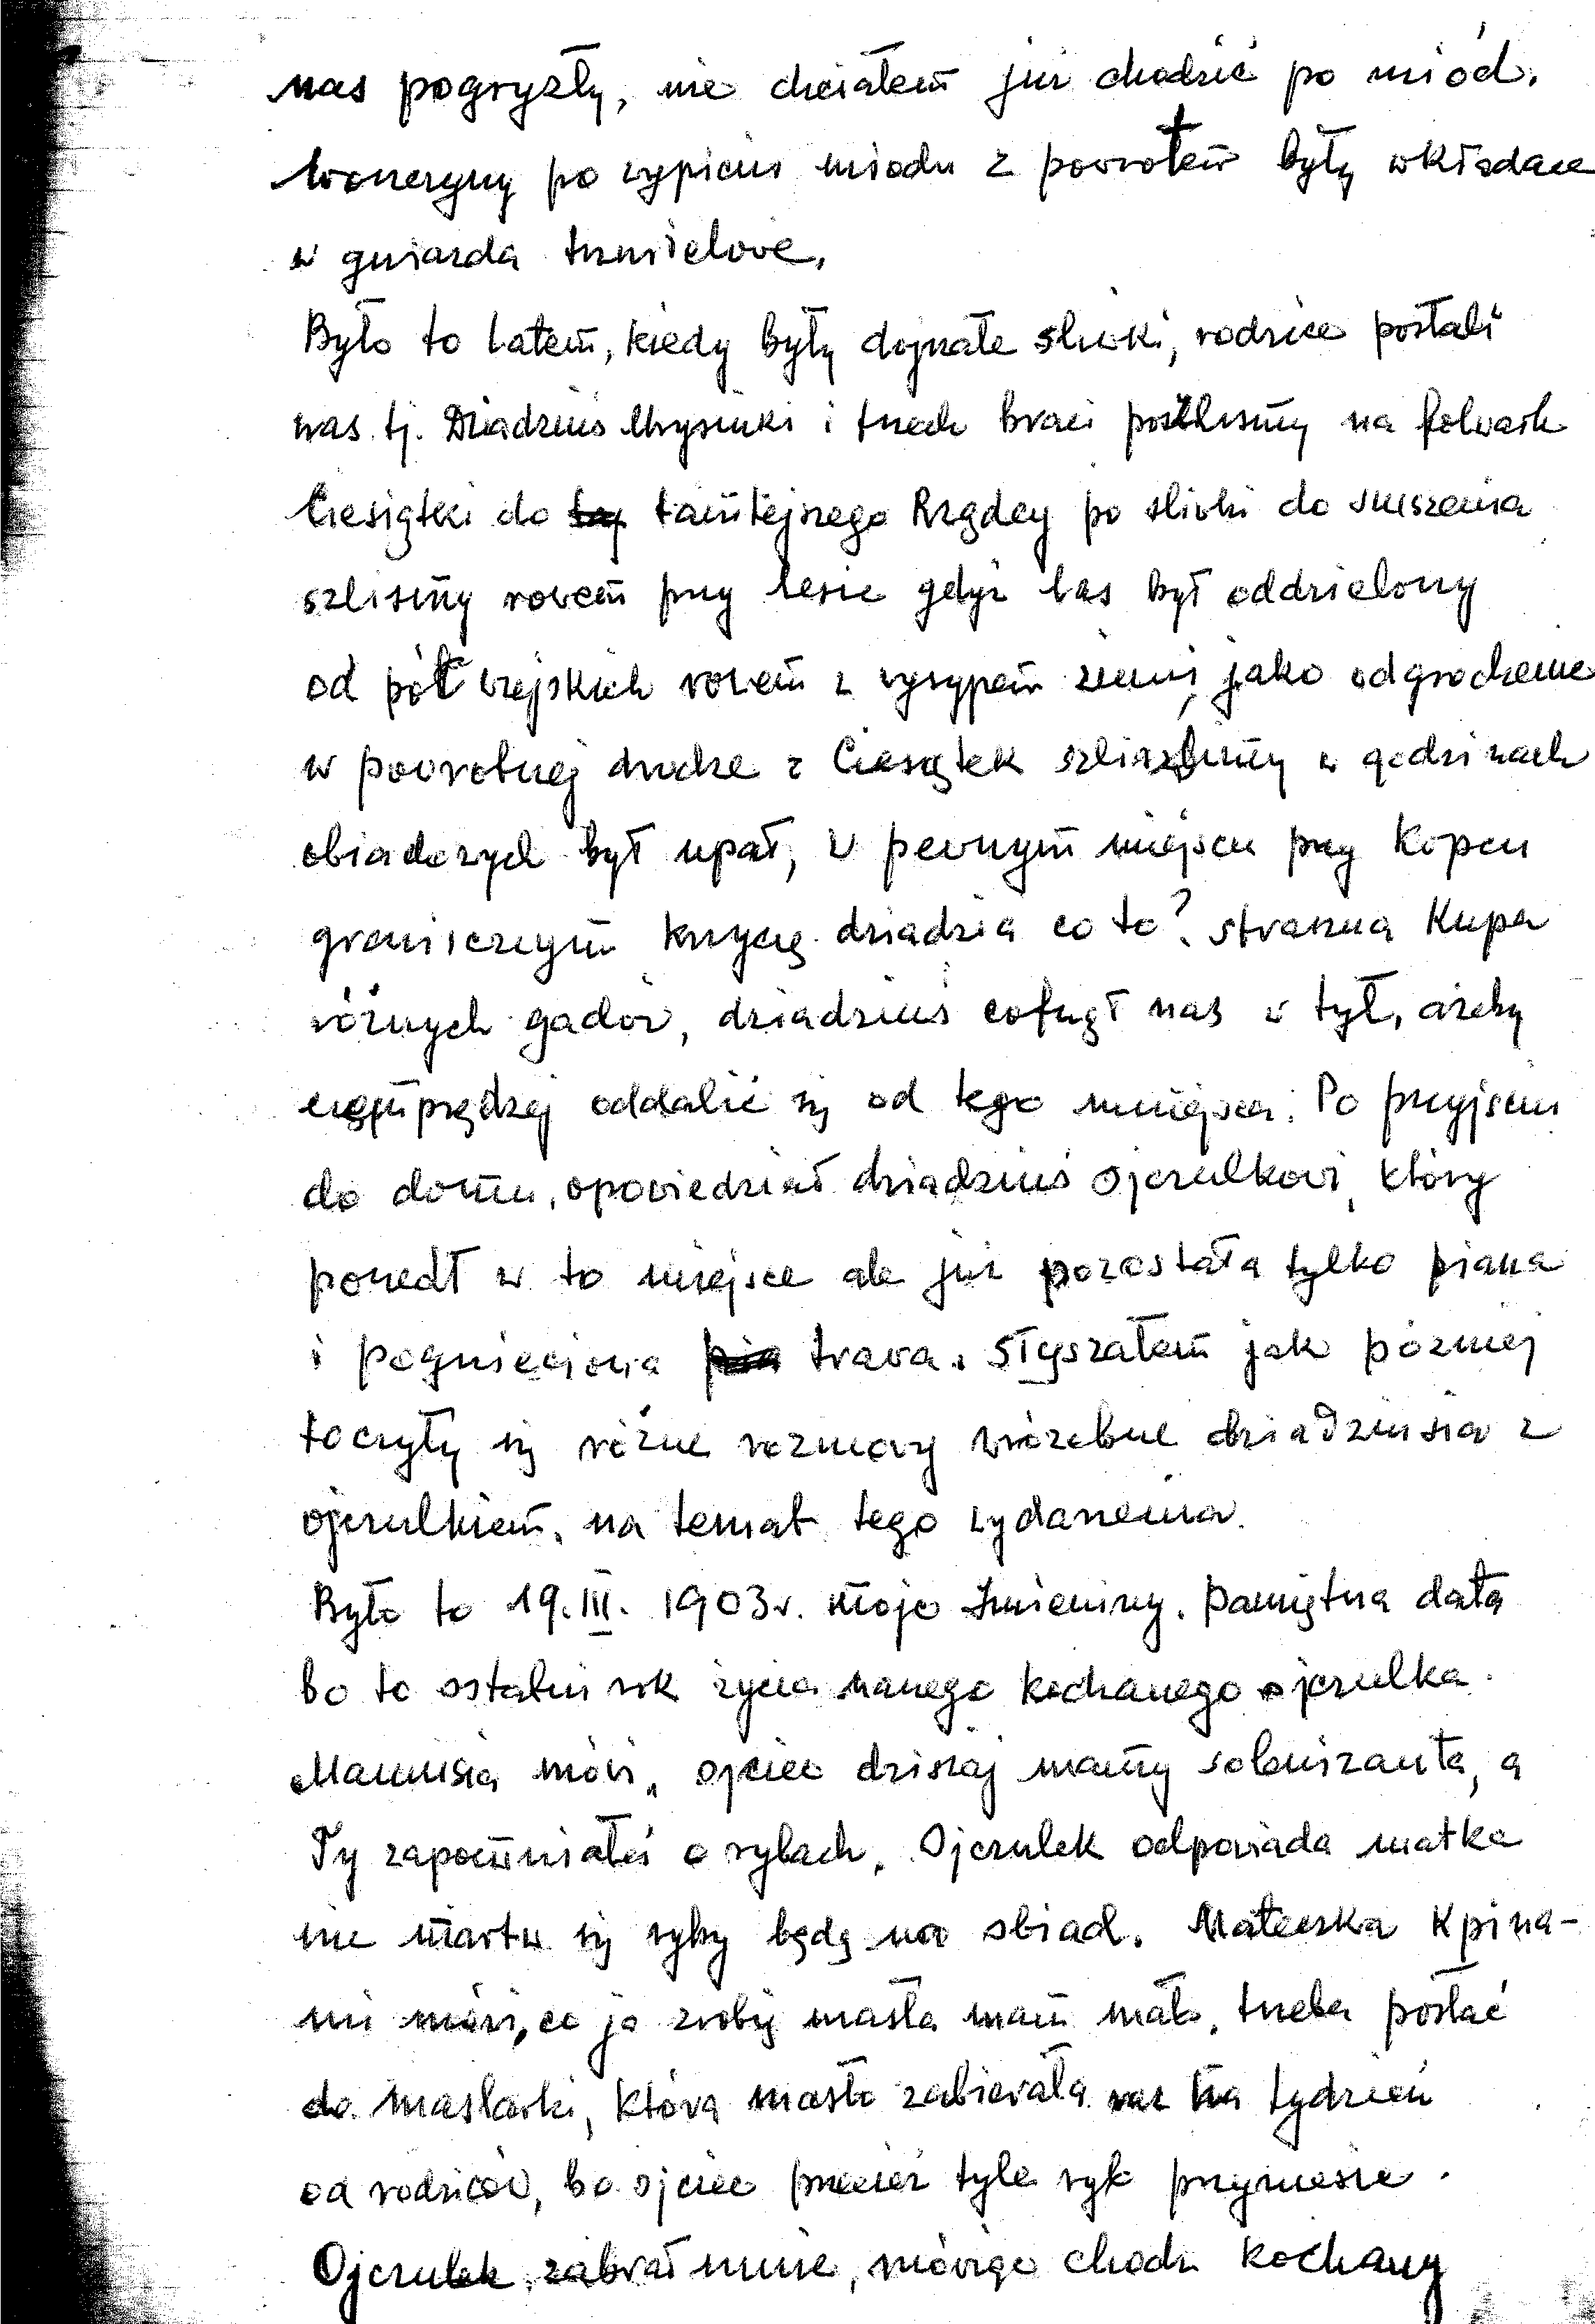 nas pogryzły, nie chciałem już chodzić po miód.
Woszczyny po wypiciu miodu z powrotem były wkładane
w gniazda trzmielowe.
Było to latem, kiedy były dojrzałe śliwki, rodzice posłali
nas tj. Dziadziuś i trzech braci poszliśmy na folwark
Ciesiątki do tamtejszego Rządcy po śliwki do suszenia
szliśmy rowem przy lesie gdyż las był oddzielony
od pól wiejskich rowem z wysypem ziemi, jako odgrodzenie
w powrotnej drodze z Ciesiątek szliśmy w godzinach
obiadowych był upał, w pewnym miejscu przy kopcu
granicznym krzyczę dziadzia co to? straszna kupa
różnych gadów, dziadziuś cofnął nas w tył, ażeby
czemprędzej oddalić się od tego miejsca. Po przyjściu
do domu, opowiedział dziadziuś ojczulkowi, który
poszedł w to miejsce ale już pozostała tylko piana
i pognieciona trawa. Słyszałem jak pózniej
toczyły się różne rozmowy wróżebne dziadziusia z
ojczulkiem, na temat tego wydarzenia.
Było to 19.III. 1903r. moje Imieniny. Pamiętna data
bo to ostatni rok życia naszego kochanego ojczulka.
Mamusia mówi, ojciec dzisiaj mamy solenizanta, a
Ty zapomniałeś o rybach. Ojczulek odpowiada matka
nie martw się ryby będą na obiad. Mateczka kpina-
mi mówi, co ja zrobię masła mam mało, trzeba posłać
do maślarki, która masło zabierała raz na tydzień
od rodziców, bo ojciec przecież tyle ryb przyniesie.
Ojczulek zabrał mnie, mówiąc chodz kochany